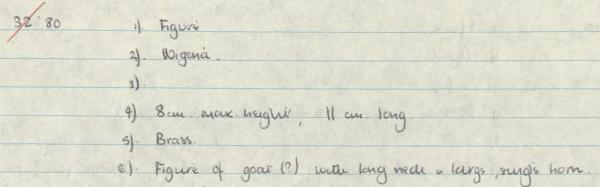 32'80 1). Figure
2). Nigeria.
3).
4) 8cm. max. height, 11 cm. long
5). Brass.
6). Figure of goat (?) with long neck & large, single horn.